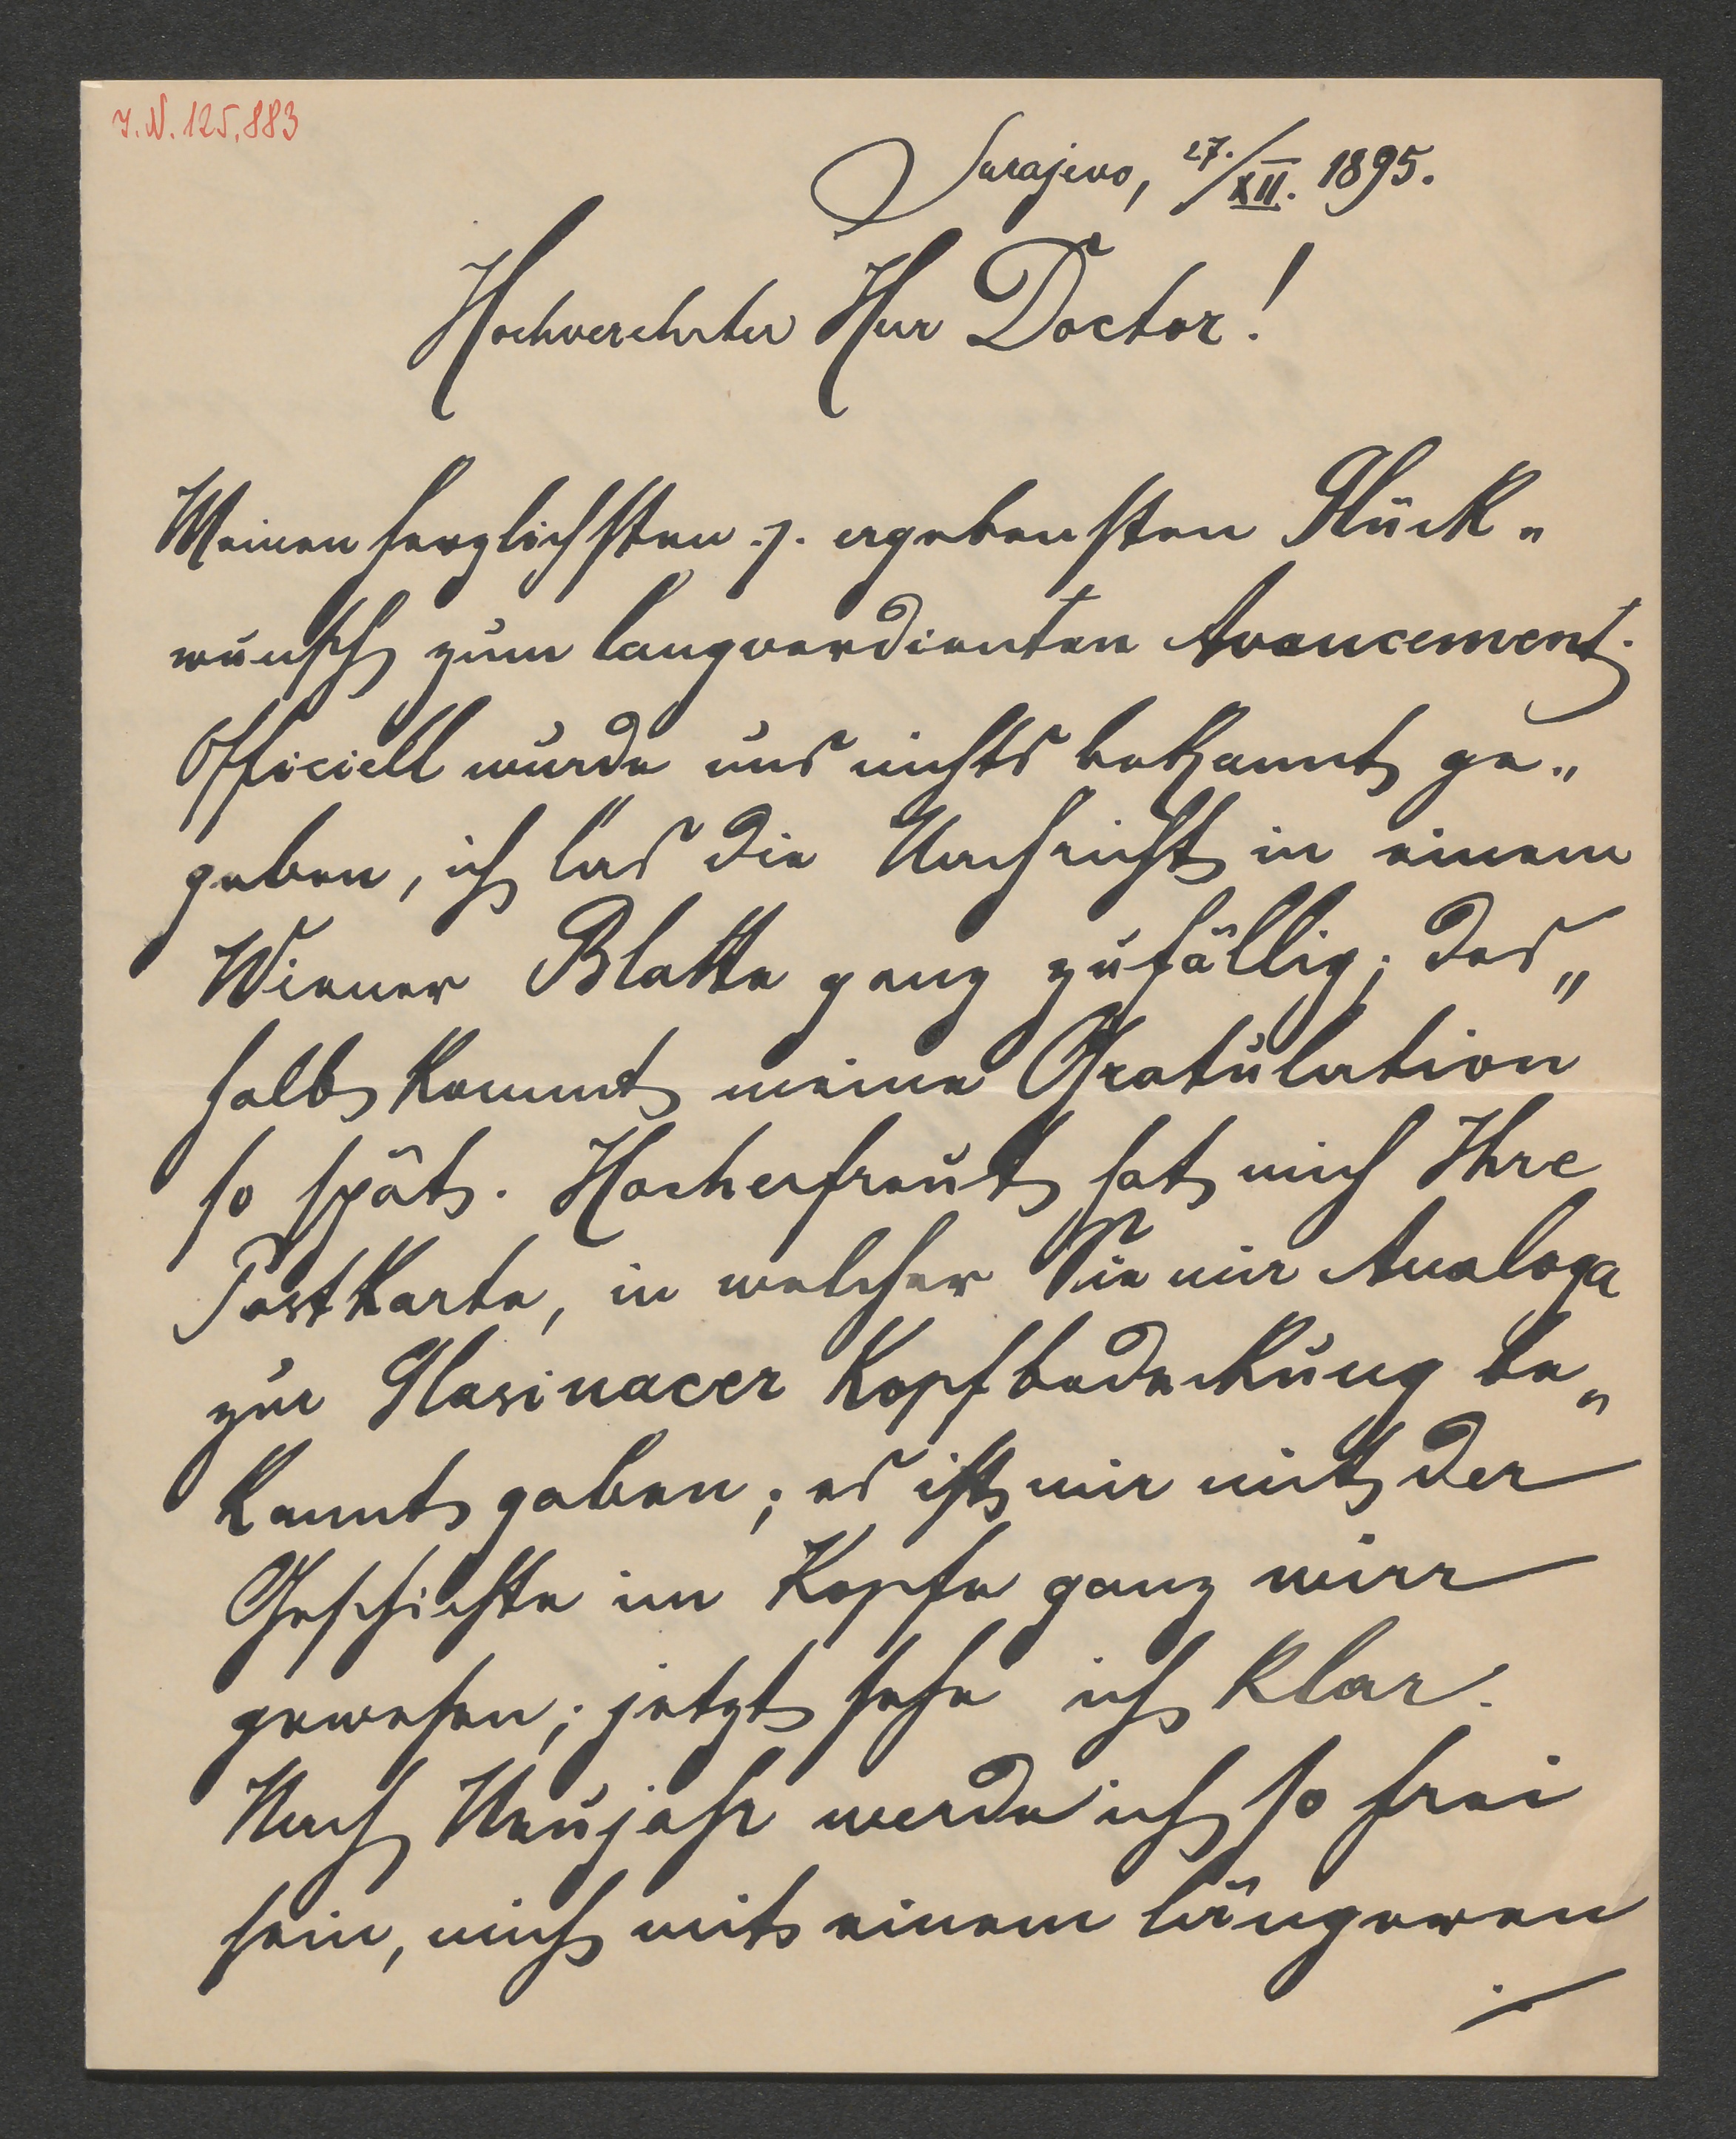 J. N. 125,883
Sarajevo, 27./XII. 1895.
Hochverehrter Herr Doctor!
Meinen herzlichsten u. ergebensten Glück„
wunsch zum langverdienten Avancement.
Officiell wurde uns nichts bekannt ge„
geben, ich las die Nachricht in einem
Wiener Blatte ganz zufällig; des„
halb kommt meine Gratulation
so spät. Hocherfreut hat mich Ihre
Postkarte, in welcher Sie mir Analoga
zur Glasinacer Kopfbedeckung be„
kannt gaben; es ist mir mit der
Geschichte im Kopfe ganz wirr
gewesen; jetzt sehe ich klar.
Nach Neujahr werde ich so frei
sein, mich mit einem längeren
./.